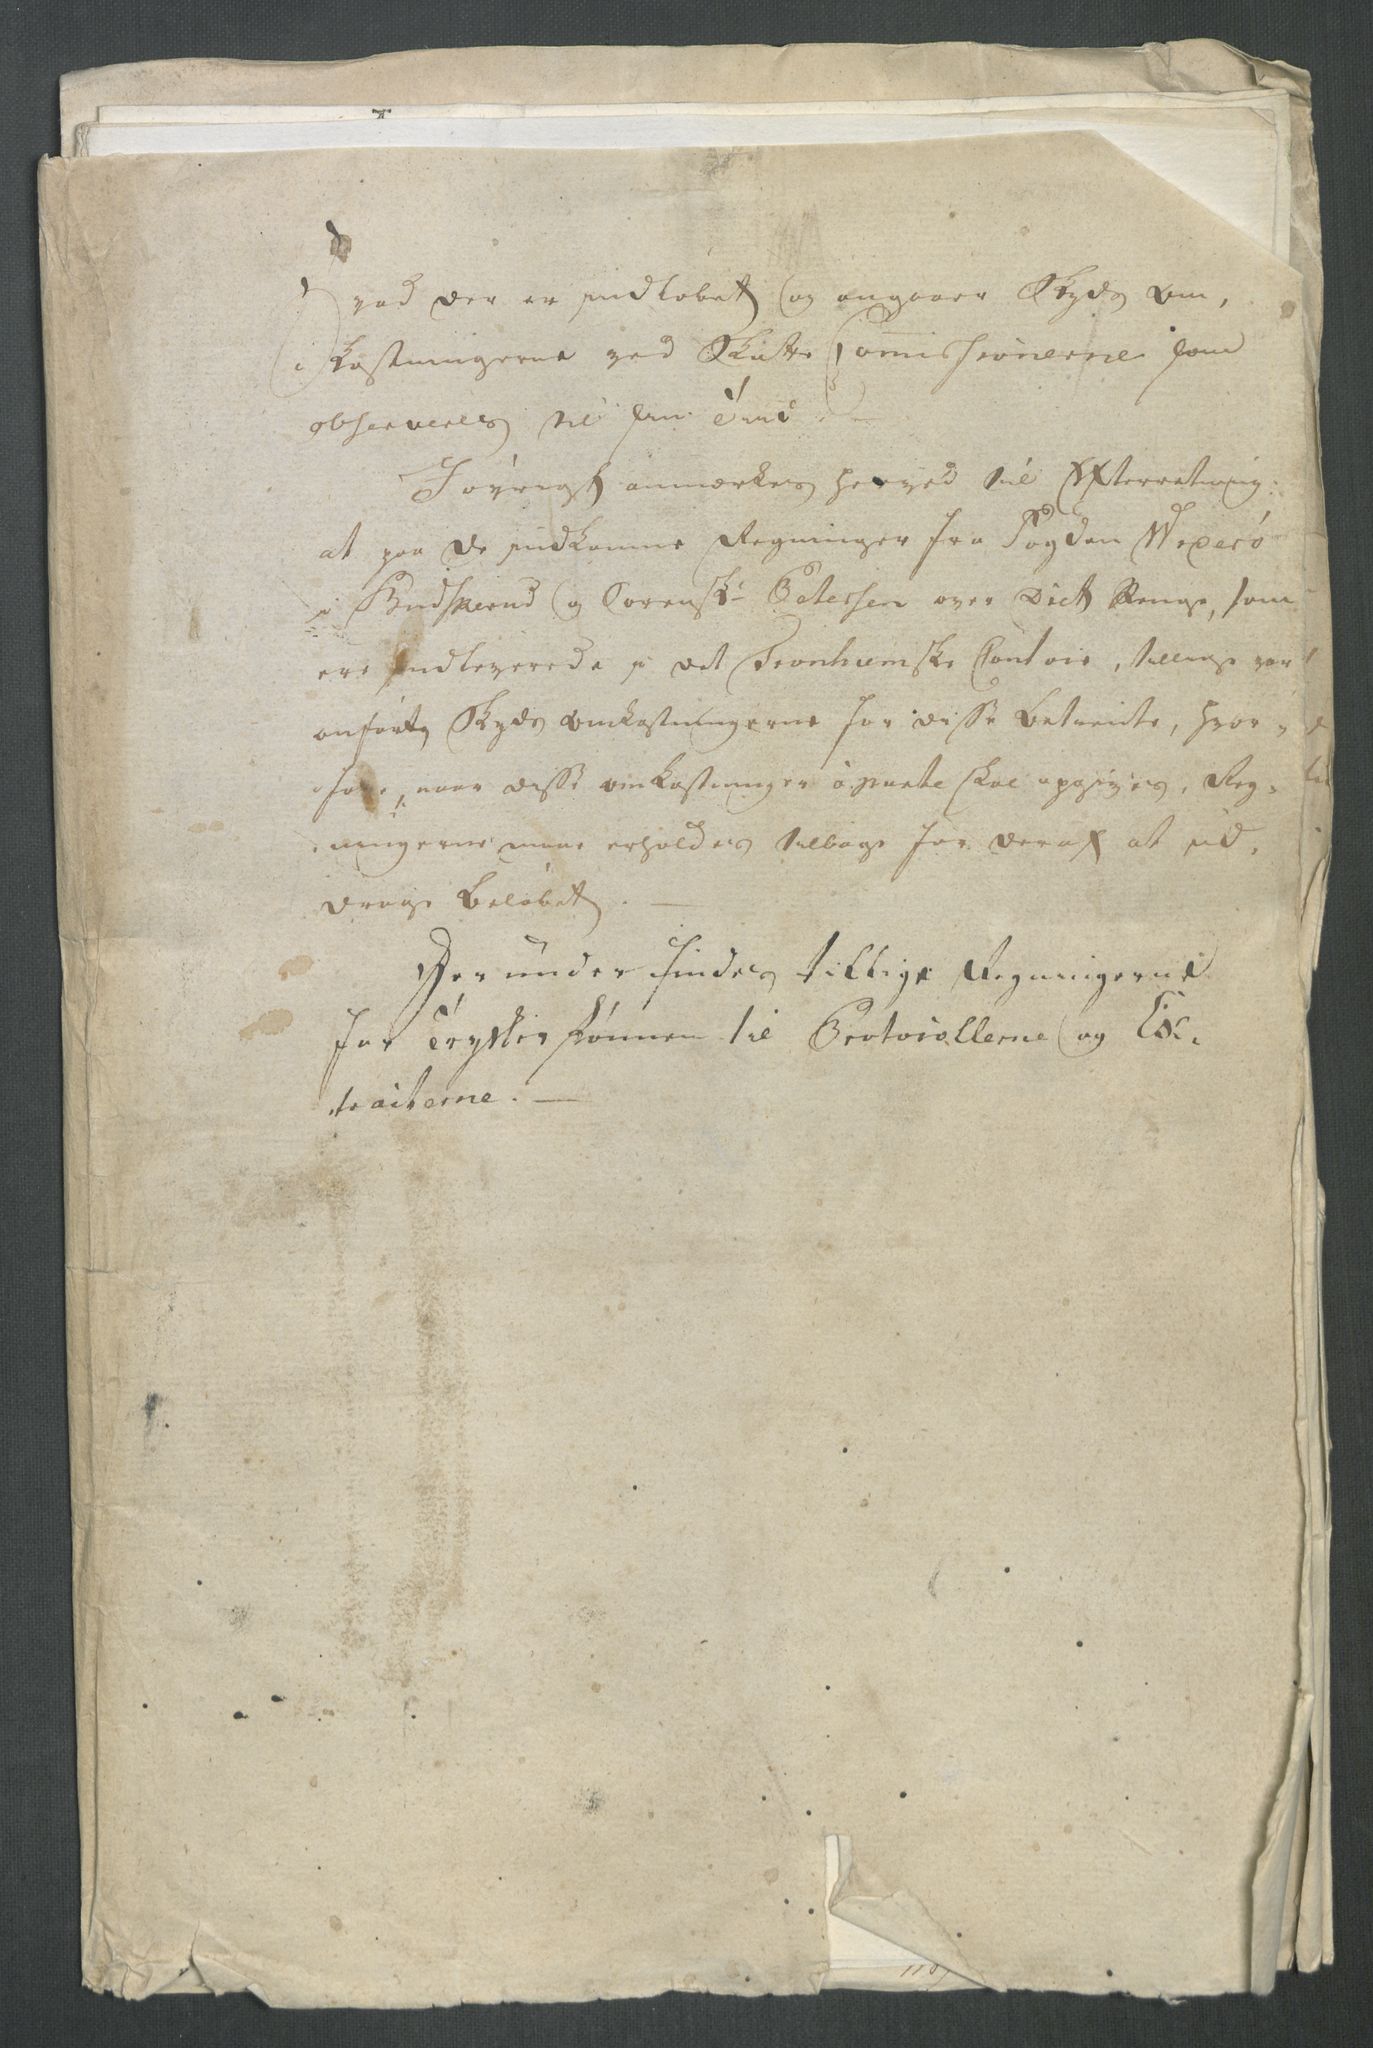 Hvad der er indløbet og angaaer Skyds Om,
kostningerne ved Skatte Commissionerne som
observeres til sin Tiid
Iøvrigt anmærkes herved til Efterretning
at paa de indkomne Regninger fra Fogden Wexels
i Budskerud og Sorensk. Petersen over Diæt Penge, som
ere indleverede i det Tronhiemske Contoir, tillige var
anført Skyds Omkostningerne for disse Betiente, hvor-
fore, naar disse Omkostninger aparte skal opgives, Reg-
ningerne maae erholdes tilbage for deraf at ud,
drage Beløbet. —
Herunder findes tillige Regningerne
for Trykkerlønnen til Protocollerne og Ex,
tracterne. —